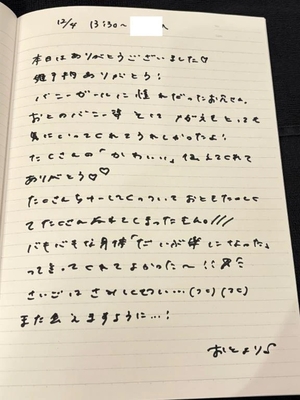 12/4 13:30〜
本日はありがとうございました♡
ありがとう!
バニーガールに憧れだったお兄さん。
おとのバニー姿 とても
気にいってくれてうれしかったよ!
たくさんの「かわいい」伝えてくれて
ありがとう♡♡
たくさんちゅーしてくっついて おとをたのしく
てたくさんぬれてしまったもん。///
バキバキな身体「だいぶ楽になった」
って言ってくれてよかった〜!!
さいごは さみしくて
また会えますように…!
おとより♪